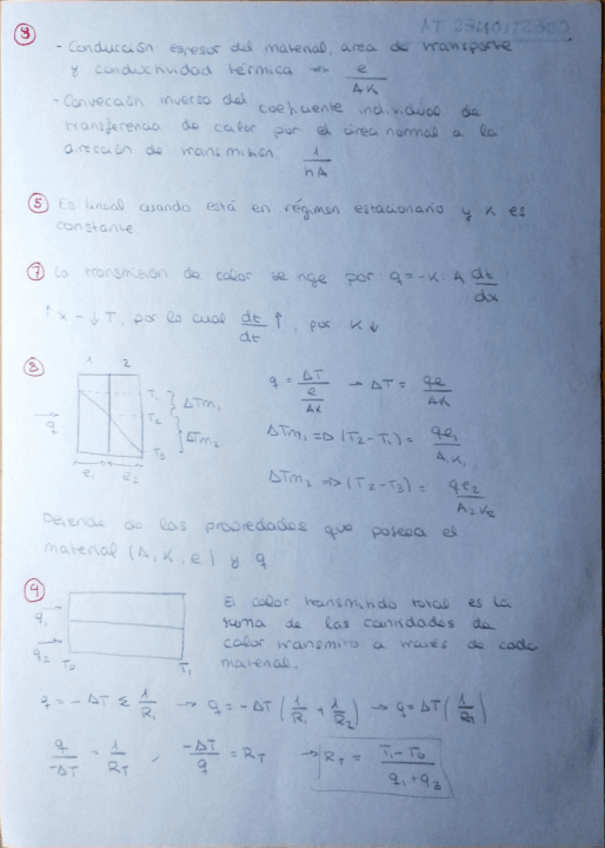 ③
- Conducción espesor del material, area de transporte
y conductividad térmica → e/AK
- Convección inverso del coeficiente individual de
transferencia de calor por el área normal a la
dirección de transmisión 1/hA
⑤ Es lineal cuando está en régimen estacionario y K es
constante
⑦ La transmisión de calor se rige por q = -K · A dt/dx
↑ x - ↓ T, por lo cual dt/dt ↑, por K ↓
⑧
1 2
q
T1
T2
T3
ΔTm1
ΔTm2
e1 e2
q = ΔT/(e/AK) → ΔT = qe/AK
ΔTm1 => (T2-T1) = qe1/A1K1
ΔTm2 => (T2-T3) = qe2/A2K2
Depende de las propiedades que posea el
material (A, K, e) y q
⑨
q1
q2 T0 T1
El calor transmitido total es la
suma de las cantidades de
calor transmitido a través de cada
material.
q = - ΔT Σ 1/Ri → q = - ΔT (1/R1 + 1/R2) → q = ΔT (1/RT)
q/-ΔT = 1/RT , -ΔT/q = RT → RT = T1-T0/q1+q2